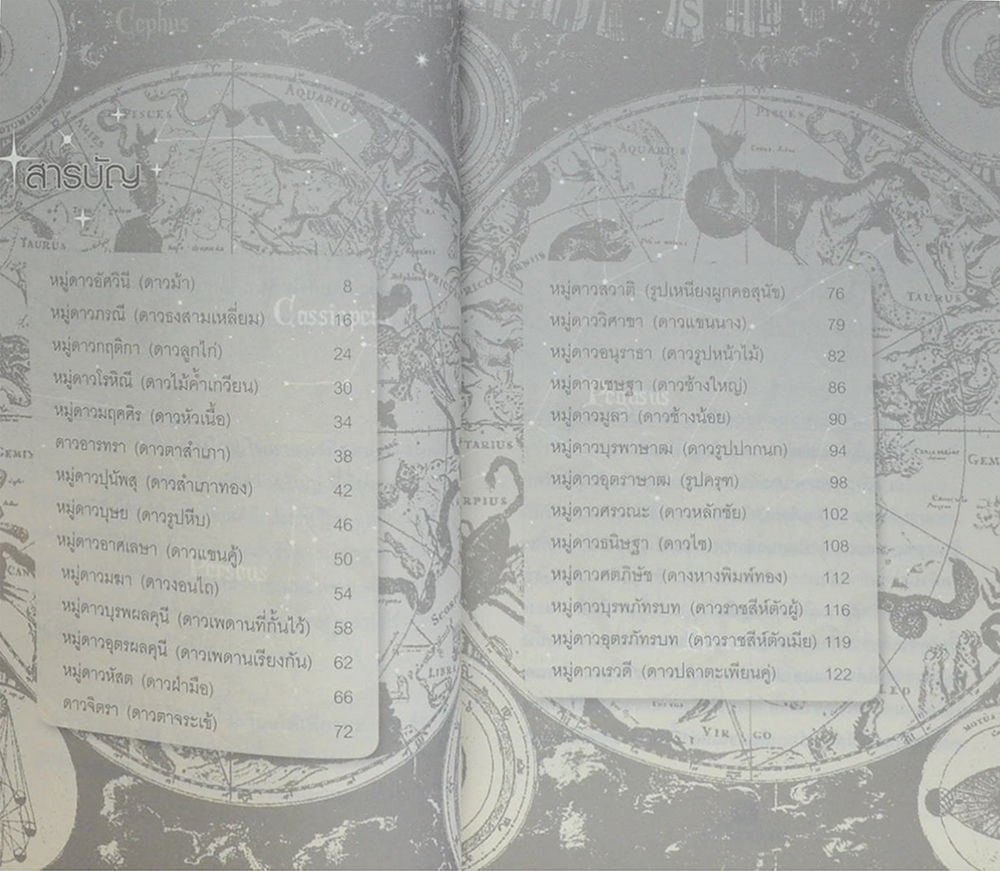 สารบัญ
หมู่ดาวอัศวินี (ดาวม้า) 8
หมู่ดาวภรณี (ดาวธงสามเหลี่ยม) 16
หมู่ดาวกฤติกา (ดาวลูกไก่) 24
หมู่ดาวโรหิณี (ดาวไม้ค้ำเกวียน) 30
หมู่ดาวมฤคศิร (ดาวหัวเนื้อ) 34
ดาวอารทรา (ดาวตาสำเภา) 38
หมู่ดาวปุนัพสุ (ดาวสำเภาทอง) 42
หมู่ดาวบุษย (ดาวรูปหีบ) 46
หมู่ดาวอาศเลษา (ดาวแขนคู้) 50
หมู่ดาวมฆา (ดาวงอนไถ) 54
หมู่ดาวบุรพผลคุนี (ดาวเพดานที่กั้นไว้) 58
หมู่ดาวอุตรผลคุนี (ดาวเพดานเรียงกัน) 62
หมู่ดาวหัสต (ดาวฝ่ามือ) 66
ดาวจิตรา (ดาวตาจระเข้) 72
หมู่ดาวสวาติ (รูปเหนียงผูกคอสุนัข) 76
หมู่ดาววิศาขา (ดาวแขนนาง) 79
หมู่ดาวอนุราธา (ดาวรูปหน้าไม้) 82
หมู่ดาวเชษฐา (ดาวช้างใหญ่) 86
หมู่ดาวมูลา (ดาวช้างน้อย) 90
หมู่ดาวบุรพาษาฒ (ดาวรูปปากนก) 94
หมู่ดาวอุตราษาฒ (รูปครุฑ) 98
หมู่ดาวศรวณะ (ดาวหลักชัย) 102
หมู่ดาวธนิษฐา (ดาวไซ) 108
หมู่ดาวศตภิษัช (ดางหางพิมพ์ทอง) 112
หมู่ดาวบุรพภัทรบท (ดาวราชสีห์ตัวผู้) 116
หมู่ดาวอุตรภัทรบท (ดาวราชสีห์ตัวเมีย) 119
หมู่ดาวเรวดี (ดาวปลาตะเพียนคู่) 122
Cephus
PISCES
AQUARIUS
ARIES
TAURUS
Perseus
PISCES
AQUARIUS
TAURUS
Pegasus
VIRGO